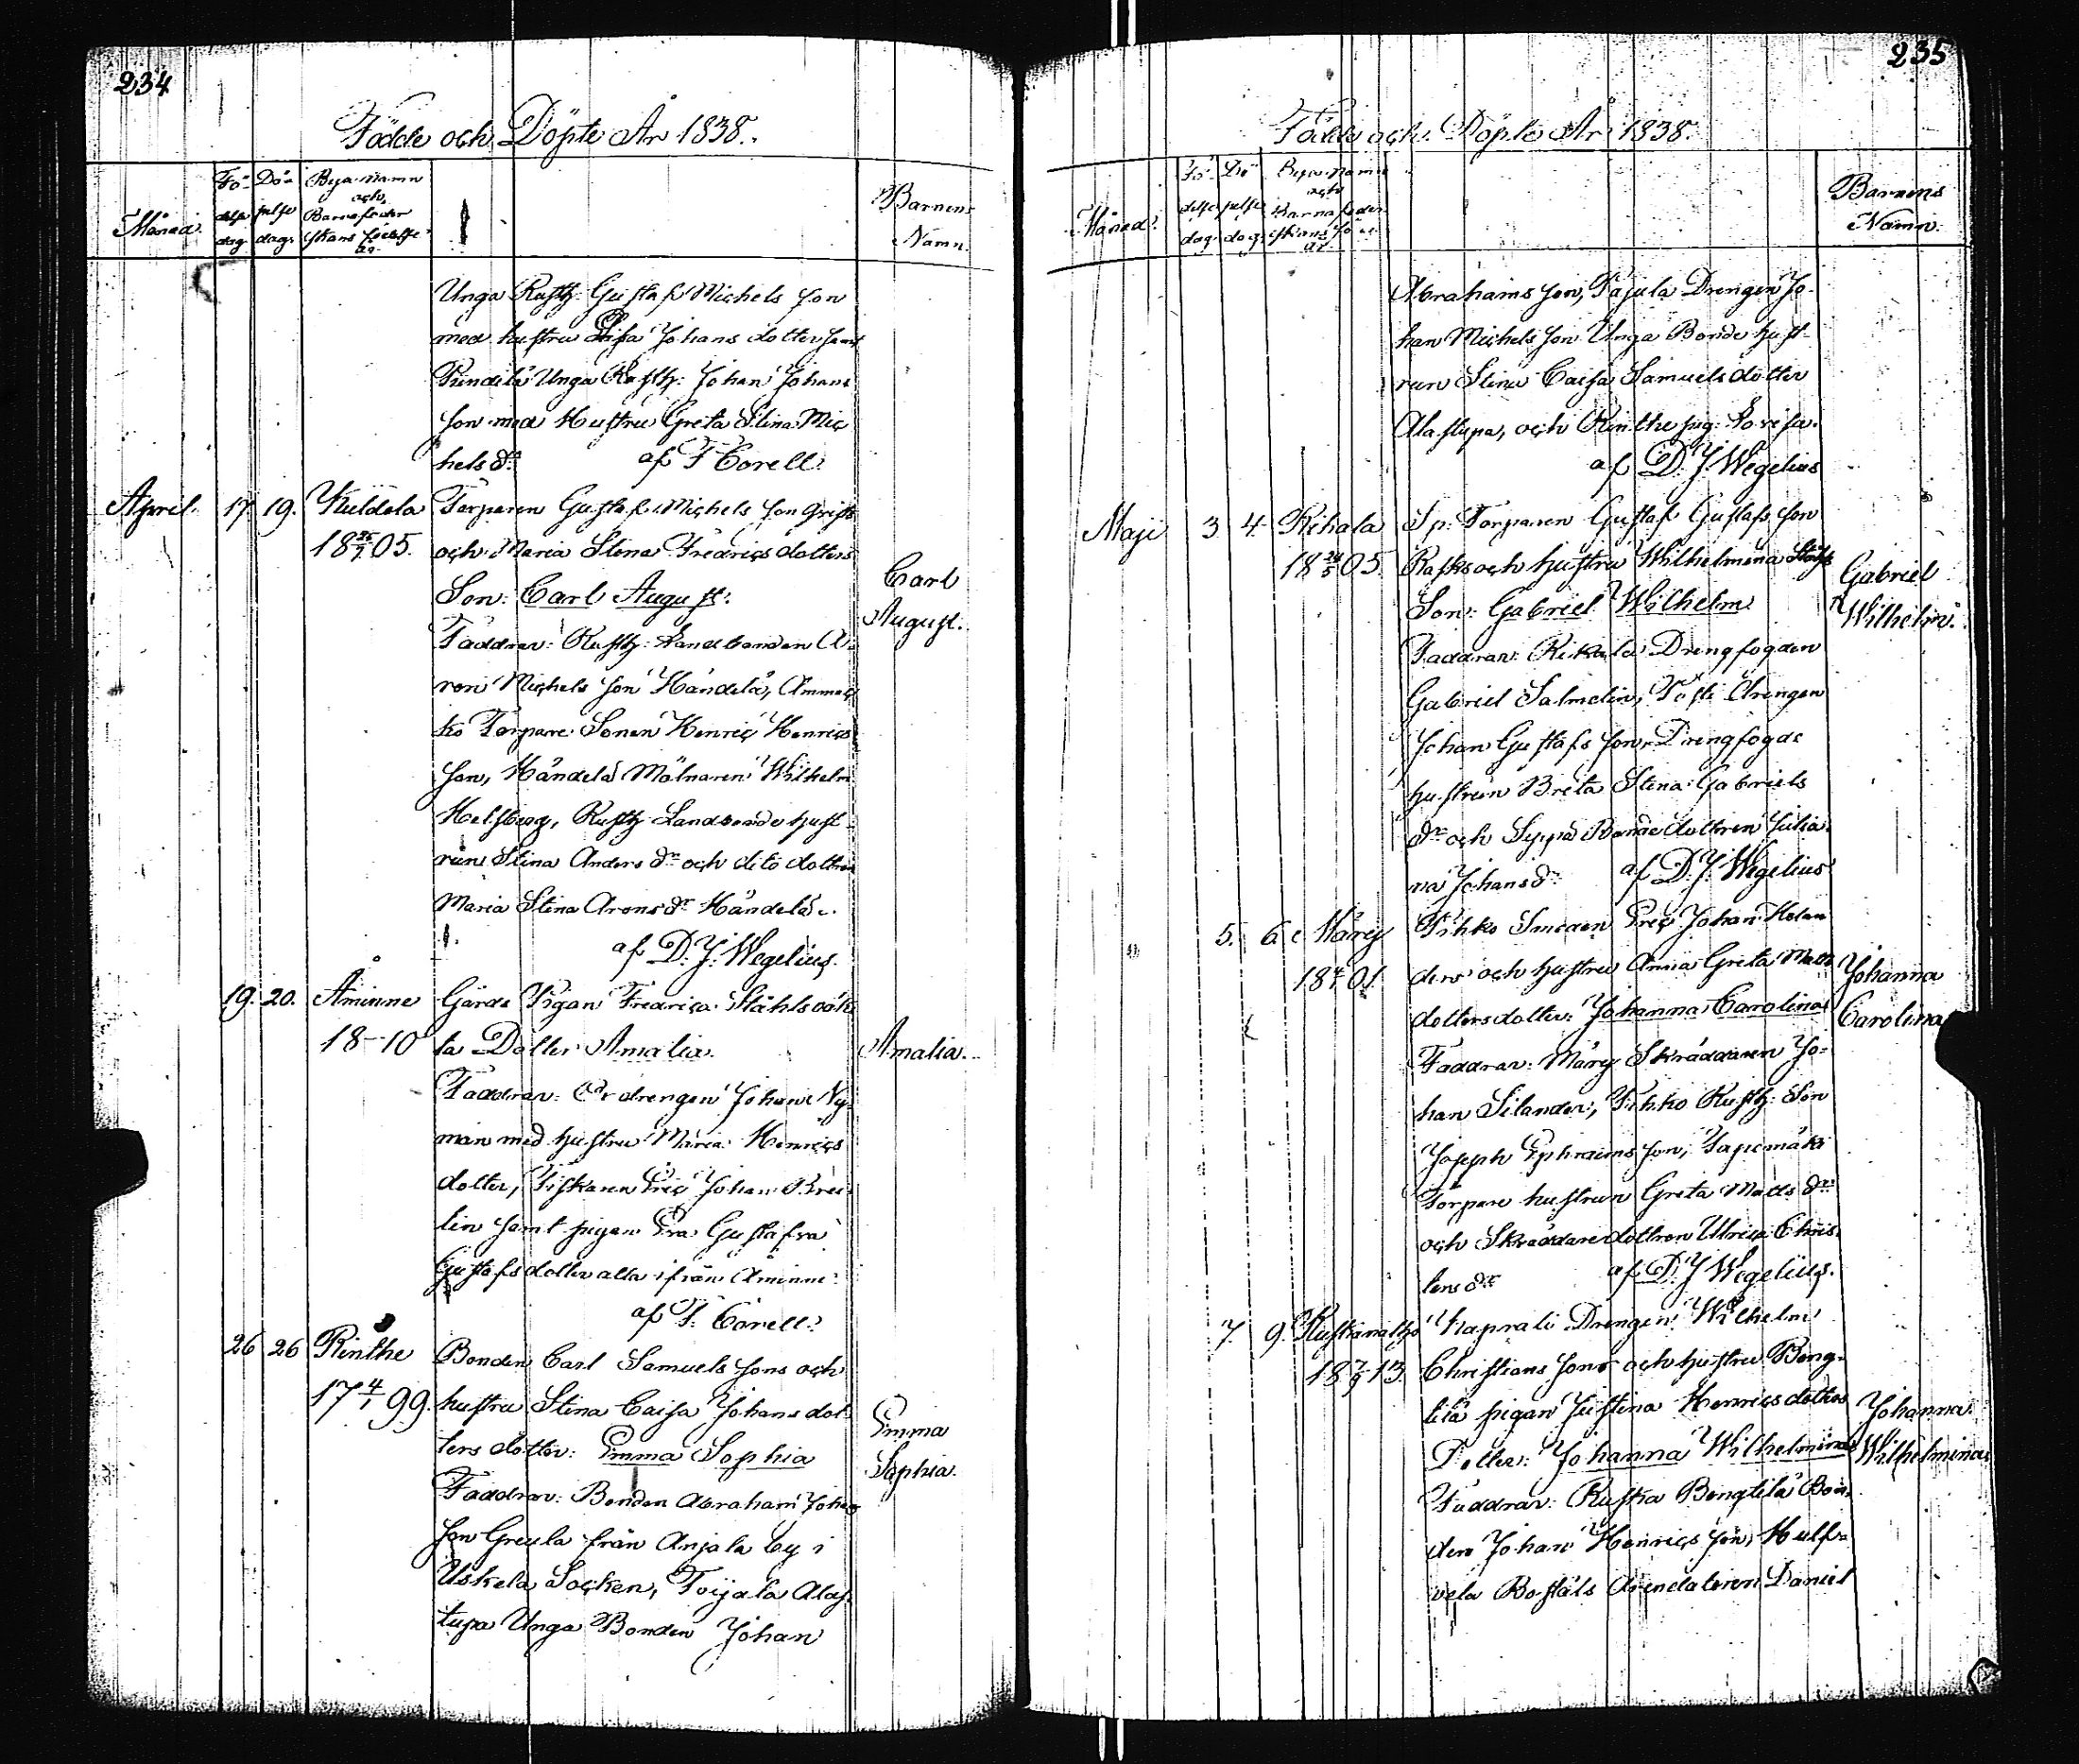 234
Födde och Döpte År 1838.
Månad.
Fö-
delse
dag.
Dö-
pelse
dag.
Bya-namn
och
Barnafeder
skans födelse
år.
Barnens
Namn.
Unga Rusth: Gustaf Michels son
med hustru Lisa Johans dotter samt
Pundila Unga Rusth: Johan Johans
son med Hustru Greta Stina Mic
hels dr. af F Corell.
April. 17 19. Kuldela Torparen Gustaf Michels son
18 05. och Maria Stena Fredrics dotters
Son: Carl August.
Carl
August.
Faddrar: Rusth: Landbonden A-
ron Michels son Händelä, Ammas
ko Torpare Sonen Henric Henrics
son, Händelä Mölnaren Wilhelm
Helsberg, Rusth Landbonde hust-
run Stina Anders dr och dito dottren
Maria Stina Arons dr Händelä.
af D. J. Wegelius.
19. 20. Åminne Gårds Pigan Fredrica Ståhls oäk
18-10 ta Dotter Amalia.
Amalia.
Faddrar: drengen Johan Ny-
man med hustru Maria Henrics
dotter, Fiskaren Eric Johan
lin samt pigan Eva Gustafva
Gustafs dotter alla ifrån Åminne.
af F. Corell.
26 26 Rinthe Bonden Carl Samuels sons och
17 4/1 99. hustru Stina Caisa Johans dot
ters dotter: Emma Sophia
Emma
Sophia.
Faddrar: Bonden Abraham Johans
son Greula från Anjala by i
Uskela Socken, Toijala Alas-
tupa Unga Bonden Johan
235
Födde och Döpte År 1838.
Månad.
Fö-
delse
dag.
Dö-
pelse
dag.
Bya-namn
och
Barnafeder
skans fö
år.
Barnens
Namn.
Abrahams son, Pajula Drengen Jo-
han Michels son Unga Bonde hust-
run Stina Caisa Samuels dotter
Alastupa, och Rinthe pig: Lovisa.
af D. J. Wegelius
Maji 3 4. Rihala Sp: Torparen Gustaf Gustafs son
18 05. Rasks och hustru Wilhelmina
Son: Gabriel Wilhelm
Gabriel
Wilhelm.
Faddrar: Drengfogden
Gabriel Salmelin, Drengen
Johan Gustafs son, Drengfogde
hustrun Breta Stina Gabriels
dr och Syppä Bonde dottren Julia-
na Johans dr. af D. J. Wegelius
5. 6. Märy Pihko Smeden Eric Johan Holan
18 01. ders och hustru Anna Greta Matts
dotters dotter: Johanna Carolina
Johanna
Carolina
Faddrar: Märy Skräddaren Jo-
han Silander, Pihko Rusth: Son
Joseph Ephraims son, Papemäki
Torpare hustrun Greta Matts dr
och Skräddaredottren Ulrica Chris-
ters dr af D. J. Wegelius.
7. 9. Kaprali Drengen Wilhelm
18 13. Christians sons och hustru Beng-
tilä pigan Justina Henrics dotters
Dotter: Johanna Wilhelmina
Johanna
Wilhelmina
Faddrar: Ruska Bengtilä Bon-
den Johan Henrics son, Hulf-
vela Boställs Arendatoren Daniel